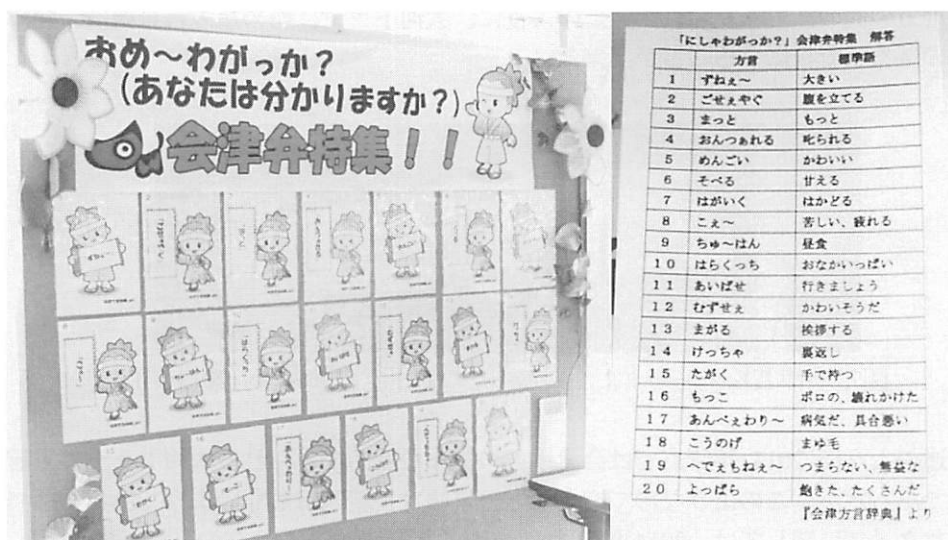 おめ～わがっか？
(あなたは分かりますか？)
会津弁特集！！
「にしゃわがっか？」会津弁特集 解答
方言 標準語
1 ずねぇ～ 大きい
2 ごせぇやぐ 腹を立てる
3 まっと もっと
4 おんつぁれる 叱られる
5 めんごい かわいい
6 そべる 甘える
7 はがいく はかどる
8 こぇ～ 苦しい、疲れる
9 ちゅ～はん 昼食
10 はらくっち おなかいっぱい
11 あいばせ 行きましょう
12 むずせぇ かわいそうだ
13 まがる 挨拶する
14 けっちゃ 裏返し
15 たがく 手で持つ
16 もっこ ボロの、壊れかけた
17 あんべぇわり～ 病気だ、具合悪い
18 こうのげ まゆ毛
19 へでぇもねぇ～ つまらない、無益な
20 よっぱら 飽きた、たくさんだ
『会津方言辞典』より